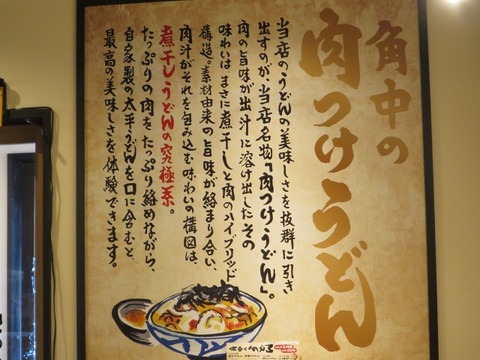 角中の
肉つけうどん
当店のうどんの美味しさを抜群に引き
出すのが、当店名物「肉つけうどん」。
肉の旨味が出汁に溶け出したその
味わいはまさに煮干しと肉のハイブリッド
構造。素材由来の旨味が絡まり合い、
肉汁がそれを包み込む味わいの構図は、
煮干しうどんの究極系。
たっぷりの肉をたっぷり絡めながら、
自家製の太平うどんを口に含むと、
最高の美味しさを体験できます。